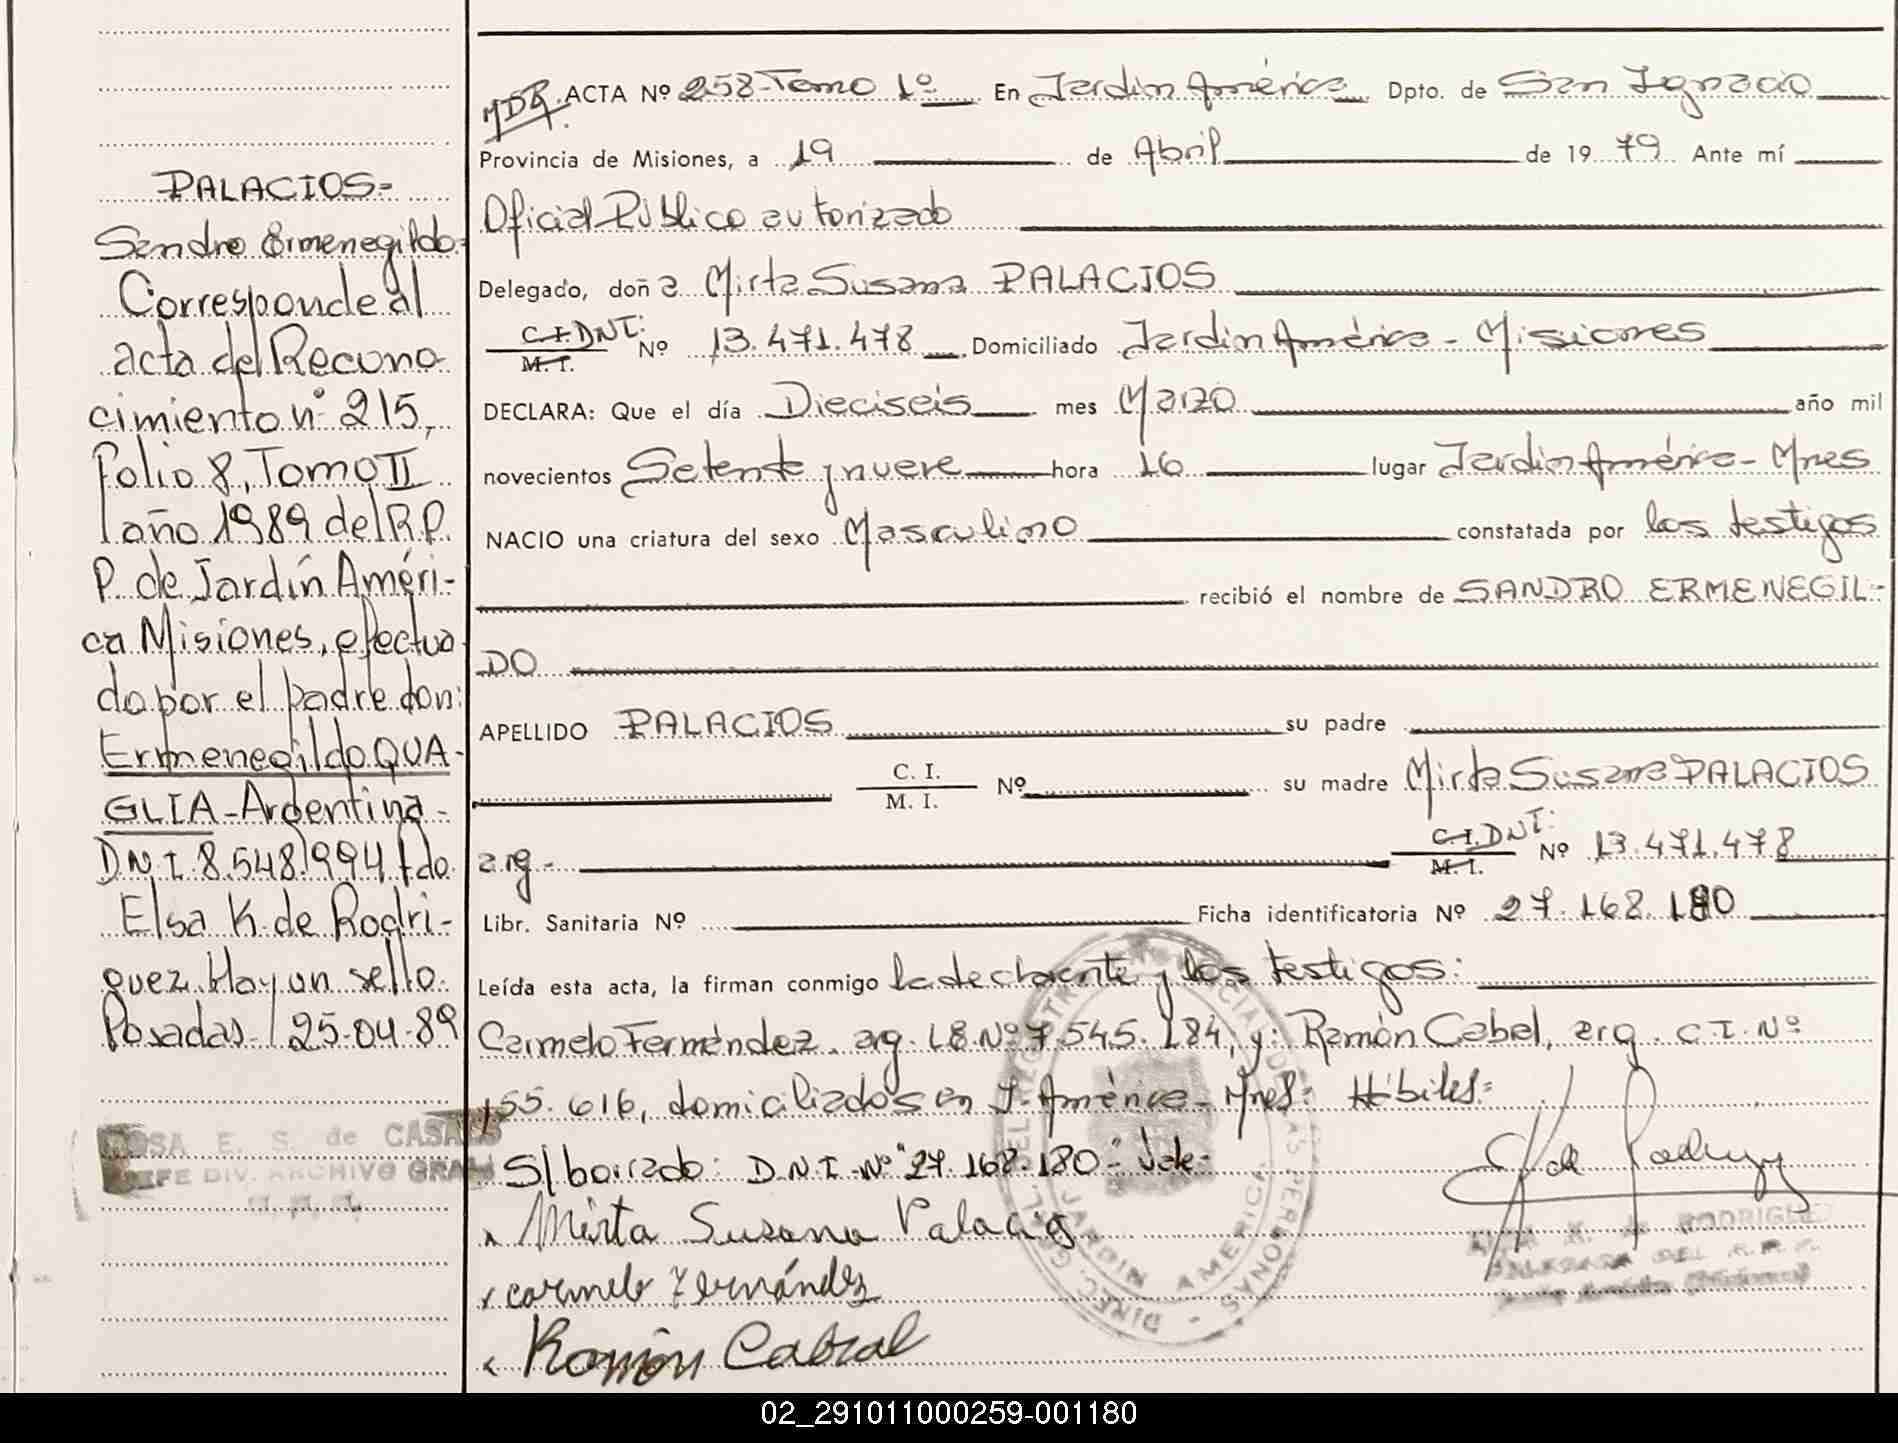 PALACIOS=
Sandro Ermenegildo=
Corresponde al
acta de Recono
cimiento nº 215,
Folio 8, Tomo II
año 1989 del R.P.
P. de Jardín Améri-
ca Misiones, efectua
do por el padre don:
Ermenegildo QUA-
GLIA - Argentina -
D.N.I. 8.548.994 fdo.
Elsa K. de Rodri-
guez. Hay un sello.
Posadas 25-04-89
ROSA E. S. de CASALS
JEFE DIV. ARCHIVO GRAL
ACTA Nº 258-Tomo 1º En Jardín América Dpto. de San Ignacio
Provincia de Misiones, a 19 de Abril de 1979 Ante mí
Oficial Público autorizado
Delegado, doña Mirta Susana PALACIOS
C.I. DNI:
M. I. Nº 13.471.478 Domiciliado Jardín América - Misiones
DECLARA: Que el día Dieciseis mes Marzo año mil
novecientos Setenta y nueve hora 16 lugar Jardín América - Mnes
NACIO una criatura del sexo Masculino constatada por los testigos
recibió el nombre de SANDRO ERMENEGIL-
DO
APELLIDO PALACIOS su padre
C. I.
M. I. Nº su madre Mirta Susana PALACIOS
arg.- C.I. DNI:
M. I. Nº 13.471.478
Libr. Sanitaria Nº Ficha identificatoria Nº 27.168.180
Leída esta acta, la firman conmigo la declarante y los testigos:
Carmelo Fernández. arg. L8.Nº 7.545.184, y: Ramón Cabel, arg. C.I. Nº
155.616, domiciliados en J. América - Mnes= Hábiles=
S/borrado: D.N.I-Nº "27.168.180"- Vale-
Mirta Susana Palacios
Carmelo Fernández
Ramón Cabral
K de Rodriguez
ELSA K. de RODRIGUEZ
DELEGADA DEL R.P.P.
DIREC. GRAL. DEL REGISTRO PROVINCIAL DE LAS PERSONAS
JARDIN AMERICA
02_291011000259-001180